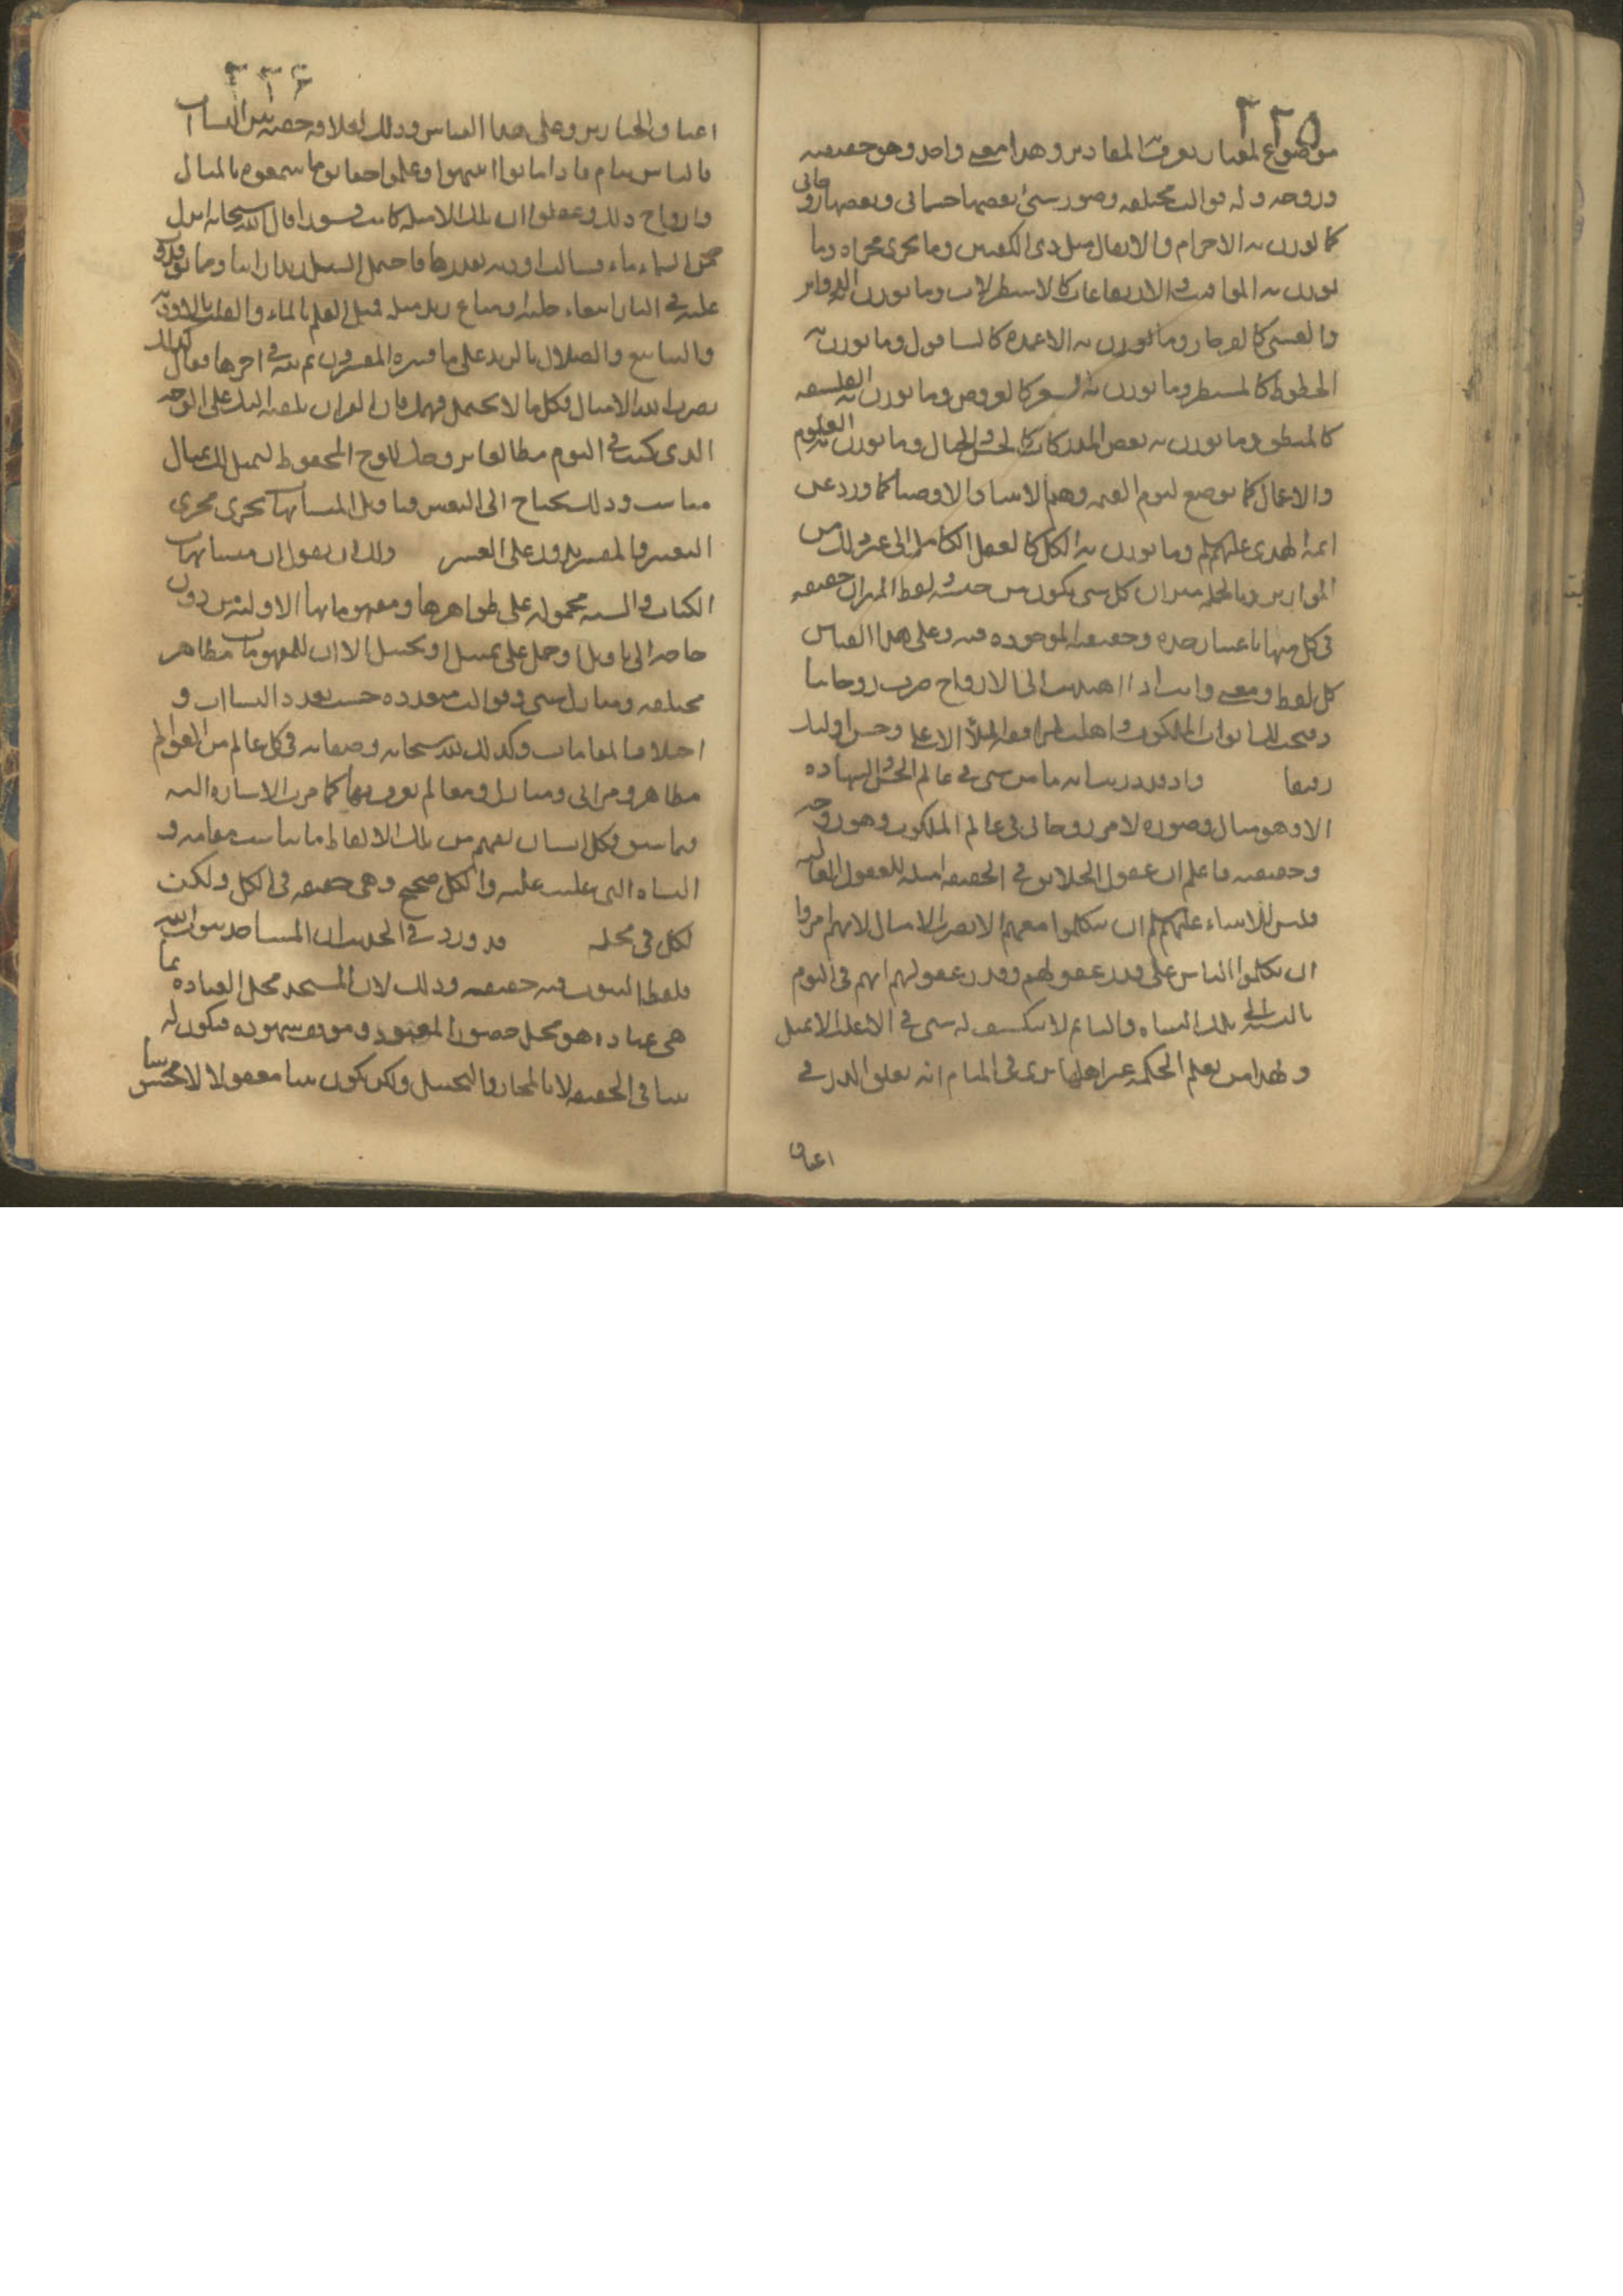 ۲۲۵
موضوع لمعيار يعرف به المقادير وهذا معنى واحد وهو حقيقته
وروحه وله قوالب مختلفه وصور شتى بعضها جسمانى وبعضها روحانى
كما يوزن به الاجرام والاثقال مثل ذى الكفتين وما يجرى مجراه وما
يوزن به المواقيت والارتفاعات كالاسطرلاب وما يوزن به الدواير
والقسى كالفرجار وما يوزن به الاعمده كالشاقول وما يوزن به
الخطوط كالمسطر وما يوزن به الشعر كالعروض وما يوزن به الفلسفه
كالمنطق وما يوزن به بعض المدركات كالحس والخيال وما يوزن به العلوم
والاعمال كما يوضع ليوم القيمه وهم الانبيا والاوصيا كما ورد عن
ائمة الهدى عليهم السلم وما يوزن به الكل كالعقل الكامل الى غير ذلك من
الموازين وبالجمله ميزان كل شى يكون من جنسه ولفظ الميزان حقيقه
فى كل منها باعتبار حده وحقيقته الموجوده فيه وعلى هذا القياس
كل لفظ ومعنى وانت اذا اهتديت الى الارواح صرت روحانيا
وفتحت لك ابواب الملكوت واهلت لمرافقة الملأ الاعلى وحسن اولئك
رفيقا واذ ورد بيانه ما من شى فى عالم الحس والشهاده
الا وهو مثال وصوره لامر روحانى فى عالم الملكوت وهو روحه
وحقيقته فاعلم ان عقول الخلايق فى الحقيقه امثله للعقول العاليه
فليس للانبياء عليهم السلم ان يتكلموا معهم الا بضرب الامثال لانهم امروا
ان يكلموا الناس على قدر عقولهم وقدر عقولهم انهم فى النوم
بالنسبة الى تلك النشاه والنايم لا ينكشف له شى فى الاغلب الا بمثل
ولهذا من يعلم الحكمه غير اهلها يرى فى المنام انه يعلق الدر فى
اعناق
۲۲۶
اعناق الخنازير وعلى هذا القياس وذلك لعلاقه خفيه بين النشاات
فالناس نيام فاذا ماتوا انتبهوا وعلموا حقايق ما سمعوه بالمثال
وارواح ذلك وعقلوا ان تلك الامثله كانت قشورا قال الله سبحانه انزل
من السماء ماء فسالت اودية بقدرها فاحتمل السيل زبدا رابيا ومما يوقدون
عليه فى النار ابتغاء حلية او متاع زبد مثله فمثل العلم بالماء والقلب بالاوديه
والينابيع والضلال بالزبد على ما فسره المفسرون ثم نبه فى اخرها فقال كذلك
يضرب الله الامثال فكل ما لا يحتمل فهمك فان القران يلقيه اليك على الوجه
الذى كنت فى النوم مطالعا بروحك للوح المحفوظ ليمثل لك بمثال
مناسب وذلك يحتاج الى التعبير فتاويل المتشابهات يجرى مجرى
التعبير والمفسر يدور على القشر ولك ان تقول ان متشابهات
الكتاب والسنه محموله على ظواهرها ومفهوماتها الاوليه من دون
حاجه الى تاويل او حمل على تمثيل او تخييل الا ان للمفهومات مظاهر
مختلفه ومنازل شتى وقوالب متعدده حسب تعدد النشاات و
اختلاف المقامات وكذلك لله سبحانه وصفاته فى كل عالم من العوالم
مظاهر ومرائى ومنازل ومعالم يعرف بها كما مرت الاشاره اليه
فيما سبق فكل انسان يفهم من تلك الالفاظ ما يناسب مقامه و
النشاه التى غلبت عليه والكل صحيح وهى حقيقه فى الكل ولكن
لكل فى محله قد ورد فى الحديث ان المساجد بيوت الله
فلفظ البيوت فيه حقيقه وذلك لان المسجد محل العباده بما
هى عباده هو محل حضور المعبود وموقف شهوده فيكون له
بيتا فى الحقيقه لا بالمجاز والتخييل ولكن يكون بيتا معقولا لا محسوسا